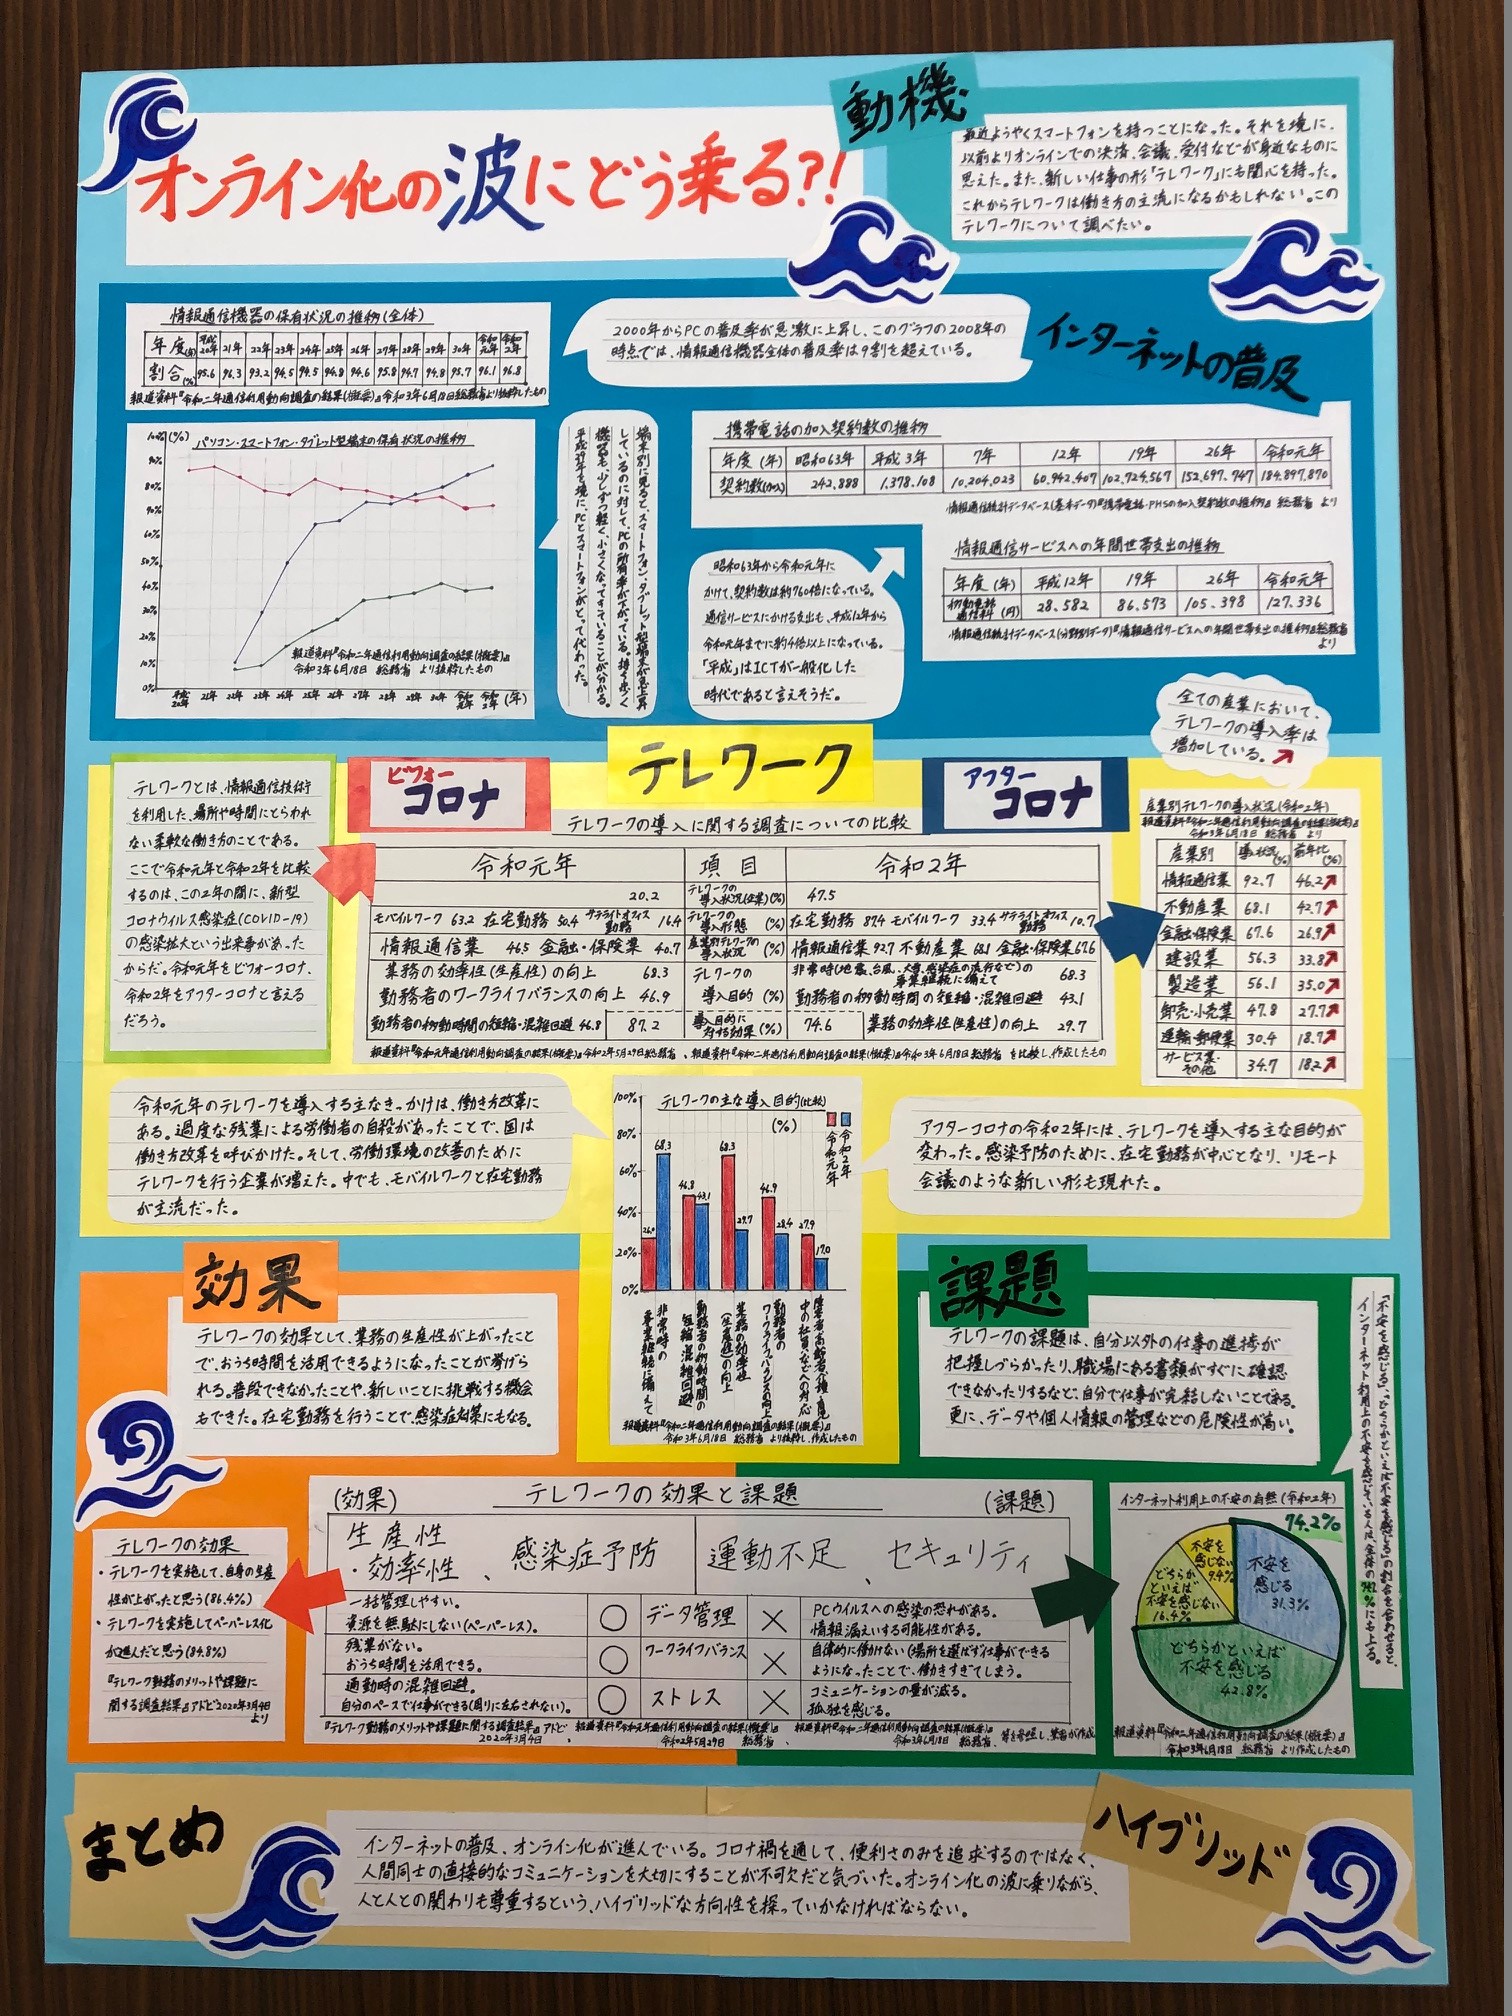 オンライン化の波にどう乗る?!
動機
最近ようやくスマートフォンを持つことになった。それを境に、
以前よりオンラインでの決済、会議、受付などが身近なものに
思えた。また、新しい仕事の形「テレワーク」にも関心を持った。
これからテレワークは働き方の主流になるかもしれない。この
テレワークについて調べたい。
インターネットの普及
情報通信機器の保有状況の推移(全体)
年度(年) 平成20年 21年 22年 23年 24年 25年 26年 27年 28年 29年 30年 令和元年 令和2年
割合(%) 95.6 96.3 93.2 94.5 94.5 94.8 94.6 95.8 94.7 94.8 95.7 96.1 96.8
報道資料『令和二年通信利用動向調査の結果(概要)』令和3年6月18日総務省より抜粋したもの
2000年からPCの普及率が急激に上昇し、このグラフの2008年の
時点では、情報通信機器全体の普及率は9割を超えている。
パソコン・スマートフォン・タブレット型端末の保有状況の推移
100% (%)
90%
80%
70%
60%
50%
40%
30%
20%
10%
0%
平成20年 21年 22年 23年 24年 25年 26年 27年 28年 29年 30年 令和元年 令和2年 (年)
報道資料『令和二年通信利用動向調査の結果(概要)』
令和3年6月18日 総務省 より抜粋したもの
端末別に見ると、スマートフォン・タブレット型端末が急上昇
しているのに対して、PCの所有率が下がっている。持ち歩く
機器も、少しずつ軽く、小さくなってきていることが分かる。
平成29年を境に、PCとスマートフォンがとって代わった。
携帯電話の加入契約数の推移
年度(年) 昭和63年 平成3年 7年 12年 19年 26年 令和元年
契約数(加入) 242.888 1.378.108 10.204.023 60.942.407 102.724.567 152.697.747 184.897.870
情報通信統計データベース(基本データ)『携帯電話・PHSの加入契約数の推移』 総務省 より
昭和63年から令和元年に
かけて、契約数は約760倍になっている。
通信サービスにかける支出も、平成12年から
令和元年までに約4倍以上になっている。
「平成」はICTが一般化した
時代であると言えそうだ。
情報通信サービスへの年間世帯支出の推移
年度(年) 平成12年 19年 26年 令和元年
移動電話通信料(円) 28.582 86.573 105.398 127.336
情報通信統計データベース(分野別データ)『情報通信サービスへの年間世帯支出の推移』総務省
より
テレワーク
全ての産業において、
テレワークの導入率は
増加している。
テレワークとは、情報通信技術
を利用した、場所や時間にとらわれ
ない柔軟な働き方のことである。
ここで令和元年と令和2年を比較
するのは、この2年の間に、新型
コロナウイルス感染症(COVID-19)
の感染拡大という出来事があった
からだ。令和元年をビフォーコロナ、
令和2年をアフターコロナと言える
だろう。
ビフォー
コロナ
アフター
コロナ
テレワークの導入に関する調査についての比較
令和元年 項目 令和2年
20.2 テレワークの導入状況(企業)(%) 47.5
モバイルワーク 63.2 在宅勤務 50.4 サテライトオフィス勤務 16.4 テレワークの導入形態 (%) 在宅勤務 87.4 モバイルワーク 33.4 サテライトオフィス勤務 10.7
情報通信業 46.5 金融・保険業 40.7 産業別テレワークの導入状況 (%) 情報通信業 92.7 不動産業 68.1 金融・保険業 67.6
業務の効率性(生産性)の向上 68.3 テレワークの 非常時(地震、台風、大雪、感染症の流行など)の事業継続に備えて 68.3
勤務者のワークライフバランスの向上 46.9 導入目的 (%) 勤務者の移動時間の短縮・混雑回避 43.1
勤務者の移動時間の短縮・混雑回避 46.8 87.2 導入目的に対する効果(%) 74.6 業務の効率性(生産性)の向上 29.7
報道資料『令和元年通信利用動向調査の結果(概要)』令和2年5月29日総務省 、報道資料『令和二年通信利用動向調査の結果(概要)』令和3年6月18日総務省 を比較し、作成したもの
産業別テレワークの導入状況(令和2年)
報道資料『令和二年通信利用動向調査の結果(概要)』
令和3年6月18日 総務省 より
産業別 導入状況(%) 前年比(%)
情報通信業 92.7 46.2
不動産業 68.1 42.7
金融・保険業 67.6 26.9
建設業 56.3 33.8
製造業 56.1 35.0
卸売・小売業 47.8 27.7
運輸・郵便業 30.4 18.7
サービス業・その他 34.7 18.2
令和元年のテレワークを導入する主なきっかけは、働き方改革に
ある。過度な残業による労働者の自殺があったことで、国は
働き方改革を呼びかけた。そして、労働環境の改善のために
テレワークを行う企業が増えた。中でも、モバイルワークと在宅勤務
が主流だった。
テレワークの主な導入目的(比較)
(%)
令和元年
令和2年
100%
80%
60%
40%
20%
0%
68.3
46.8 43.1
68.3 29.7
46.9 28.4
27.9 17.0
非常時の事業継続に備えて
勤務者の移動時間の短縮・混雑回避
業務の効率性(生産性)の向上
勤務者のワークライフバランスの向上
報道資料『令和二年通信利用動向調査の結果(概要)』
令和3年6月18日 総務省 より抜粋し、作成したもの
アフターコロナの令和2年には、テレワークを導入する主な目的が
変わった。感染予防のために、在宅勤務が中心となり、リモート
会議のような新しい形も現れた。
効果
テレワークの効果として、業務の生産性が上がったこと
で、おうち時間を活用できるようになったことが挙げら
れる。普段できなかったことや、新しいことに挑戦する機会
もできた。在宅勤務を行うことで、感染症対策にもなる。
課題
テレワークの課題は、自分以外の仕事の進捗が
把握しづらかったり、職場にある書類がすぐに確認
できなかったりするなど、自分で仕事が完結しないことである。
更に、データや個人情報の管理などの危険性が高い。
「不安を感じる」、「どちらかといえば不安を感じる」の割合を合わせると、
インターネット利用上の不安を感じている人は、全体の74.2%にも上る。
テレワークの効果
・テレワークを実施して、自身の生産
性が上がったと思う(86.4%)
・テレワークを実施してペーパーレス化
が進んだと思う(84.8%)
『テレワーク勤務のメリットや課題に
関する調査結果』アドビ2020年3月4日
より
(効果) テレワークの効果と課題 (課題)
生産性・効率性、感染症予防 運動不足、セキュリティ
一括管理しやすい。
資源を無駄にしない(ペーパーレス)。 ○ データ管理 × PCウイルスへの感染の恐れがある。
情報漏えいする可能性がある。
残業がない。
おうち時間を活用できる。 ○ ワークライフバランス × 自律的に働けない(場所を選ばず仕事ができる
ようになったことで、働きすぎてしまう。
通勤時の混雑回避。
自分のペースで仕事ができる(周りに左右されない)。 ○ ストレス × コミュニケーションの量が減る。
孤独を感じる。
『テレワーク勤務のメリットや課題に関する調査結果』アドビ 2020年3月4日、報道資料『令和元年通信利用動向調査の結果(概要)』令和2年5月29日 総務省、報道資料『令和二年通信利用動向調査の結果(概要)』令和3年6月18日 総務省、等を参照し、筆者が作成
インターネット利用上の不安の有無(令和2年)
74.2%
不安を感じる 31.3%
どちらかといえば不安を感じる 42.8%
どちらかといえば不安を感じない 16.4%
不安を感じない 9.4%
報道資料『令和二年通信利用動向調査の結果(概要)』
令和3年6月18日 総務省 より作成したもの
まとめ
インターネットの普及、オンライン化が進んでいる。コロナ禍を通して、便利さのみを追求するのではなく、
人間同士の直接的なコミュニケーションを大切にすることが不可欠だと気づいた。オンライン化の波に乗りながら、
人と人との関わりも尊重するという、ハイブリッドな方向性を探っていかなければならない。
ハイブリッド